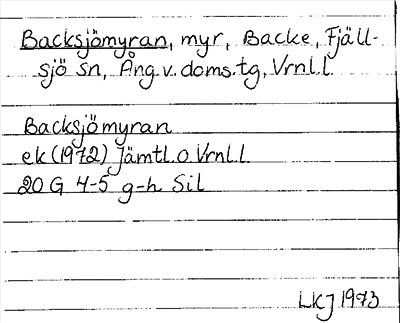 Backsjömyran, myr, Backe, Fjäll-
sjö sn, Ång.v.doms.tg, Vrnl.l.
Backsjömyran
ek (1972) Jämtl.o.Vrnl.l.
20 G 4-5 g-h Sil
LKJ 1973